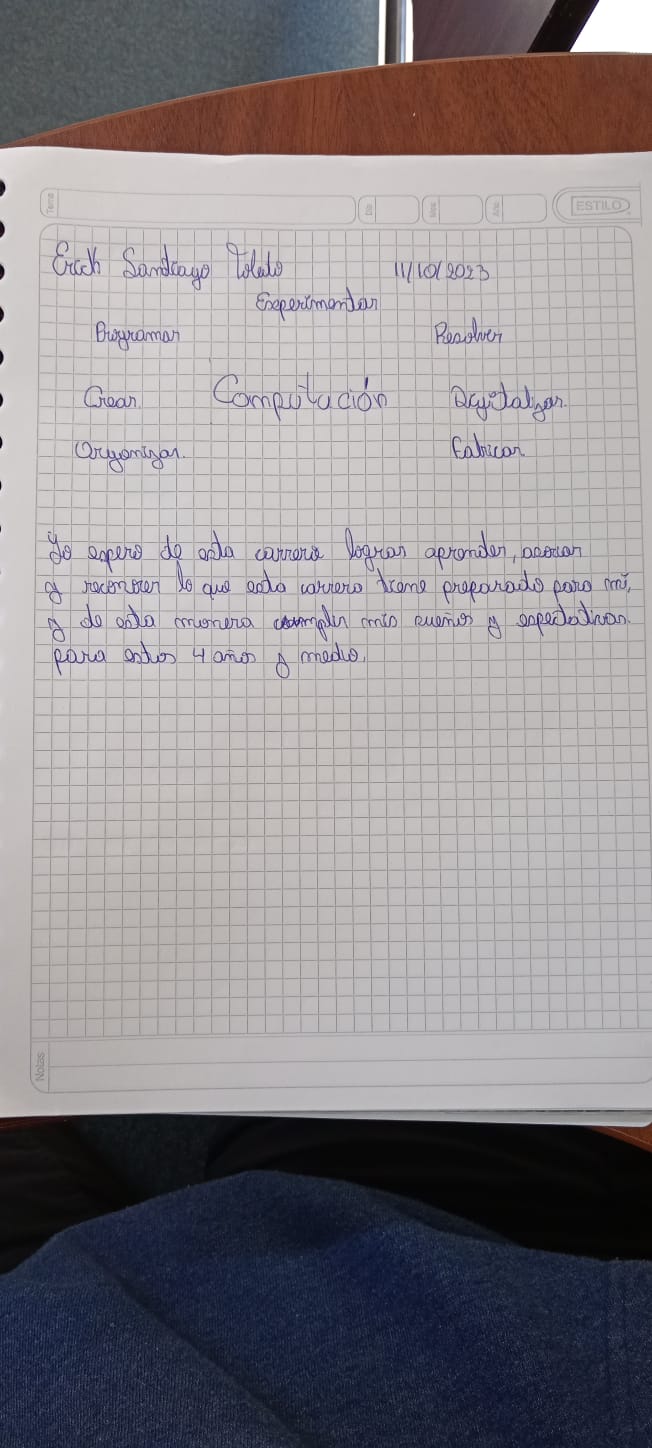 Tema
Día
Mes
Año
ESTILO
Erick Santiago Toledo 11/10/2023
Experimentar
Programar Resolver
Crear Computación Digitalizar.
Organizar. Fabricar
Yo espero de esta carrera lograr aprender,
y reconocer lo que esta carrera tiene preparado para mí,
y de esta manera cumplir mis sueños y espectativas.
para estos 4 años y medio.
Notas